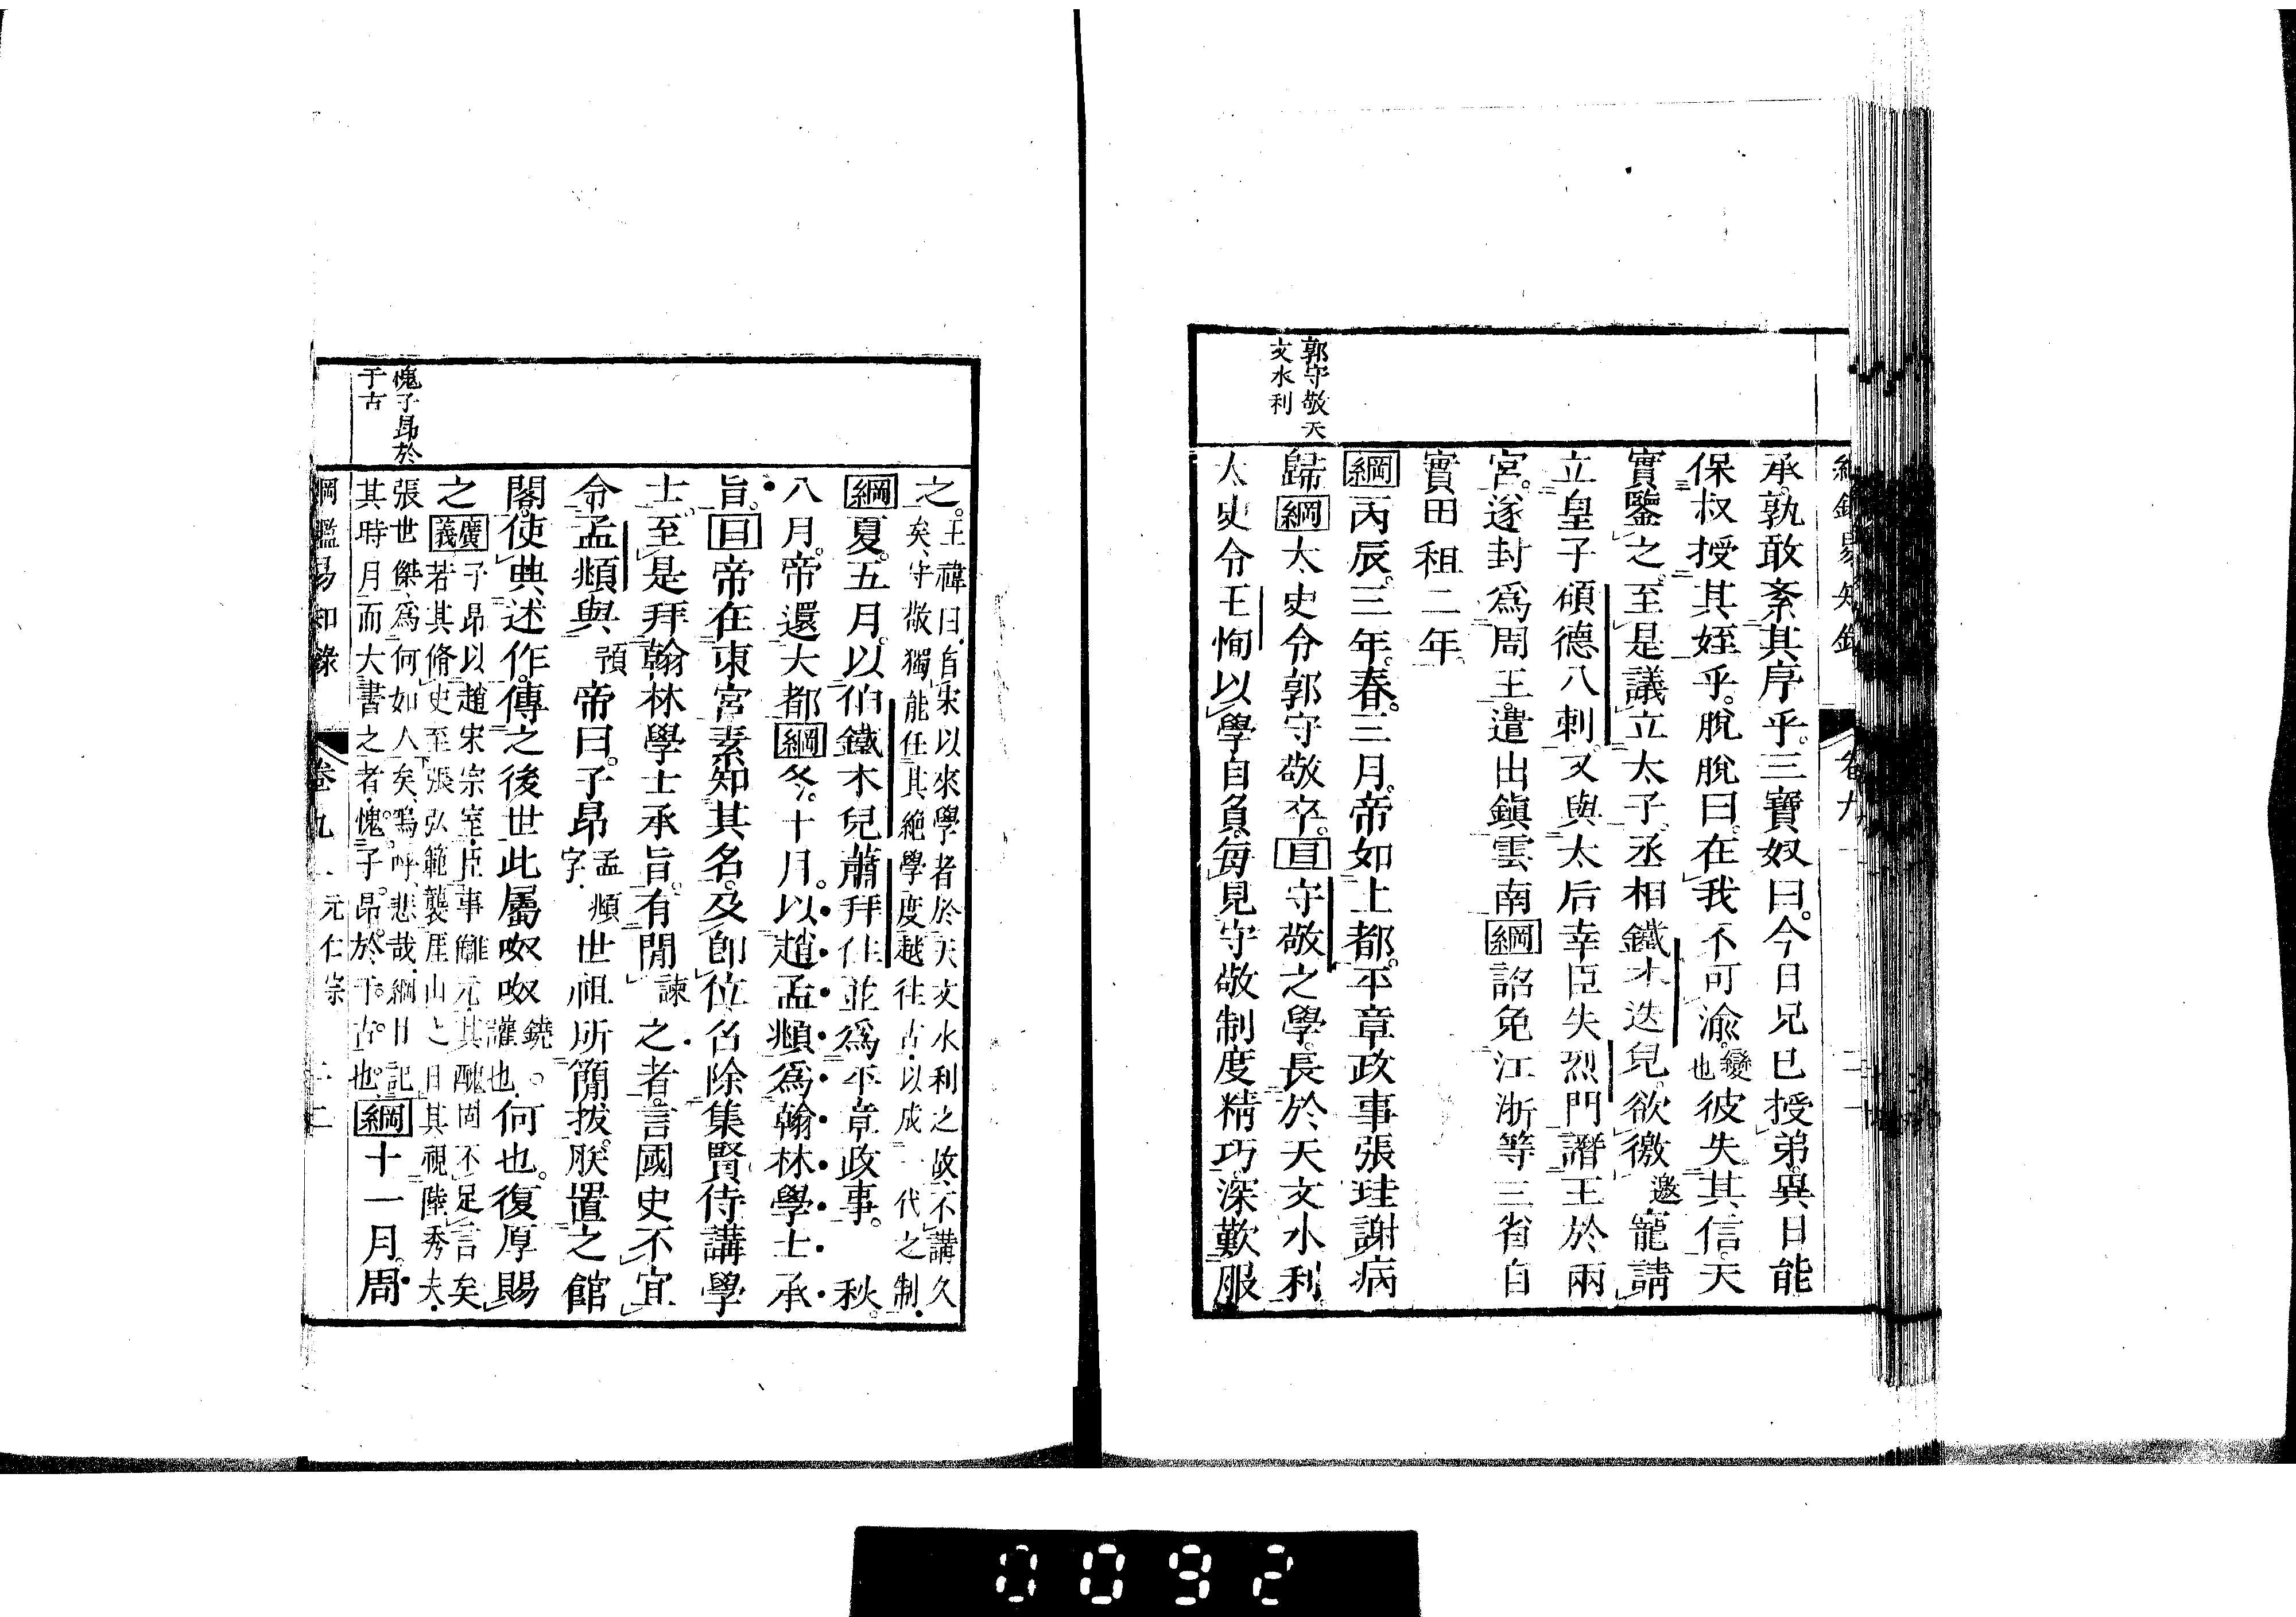 承。孰敢紊其序乎。三寶奴曰。今日兄已授弟。異日能
保叔授其姪乎。脫脫曰。在我不可渝。變也彼失其信。天
實鑒之。至是議立太子。丞相鐵木迭兒。欲徼邀寵請
立皇子碩德八刺。又與太后幸臣失烈門譖王於兩
宮。遂封爲周王。遣出鎭雲南綱詔免江浙等三省自
實田租二年
綱丙辰。三年。春。三月。帝如上都。平章政事張珪謝病
歸綱太史令郭守敬卒。目守敬之學。長於天文水利。
太史令王恂以學自負。每見守敬制度精巧深歎服
郭守敬天
文水利
之。王禕曰。自宋以來學者於天文水利之故、不講久
矣、守敬獨能任其絶學度越往古、以成一代之制、
綱夏。五月。以伯鐵木兒蕭拜住並爲平章政事。秋。
八月。帝還大都綱冬。十月。以趙孟頫爲翰林學士承
旨。目帝在東宮素知其名。及卽位召除集賢侍講學
士至是拜翰林學士承旨。有閒諫之者。言國史不宜
令孟頫與預帝曰。子昂孟頫字。世祖所簡拔。朕置之館
閣。使典述作。傳之後世此屬呶呶鐃。讙也何也。復厚賜
之廣義子昂以趙宋宗室、臣事讎元、其醜固不足言矣
若其脩史至張弘範襲厓山之日其視陸秀夫、
張世傑、爲何如人矣、嗚呼、悲哉、綱目記
其時月而大書之者、愧子昂於千古也、綱十一月。周
愧子昂於
千古
綱鑑易知錄
卷九
元仁宗
二二